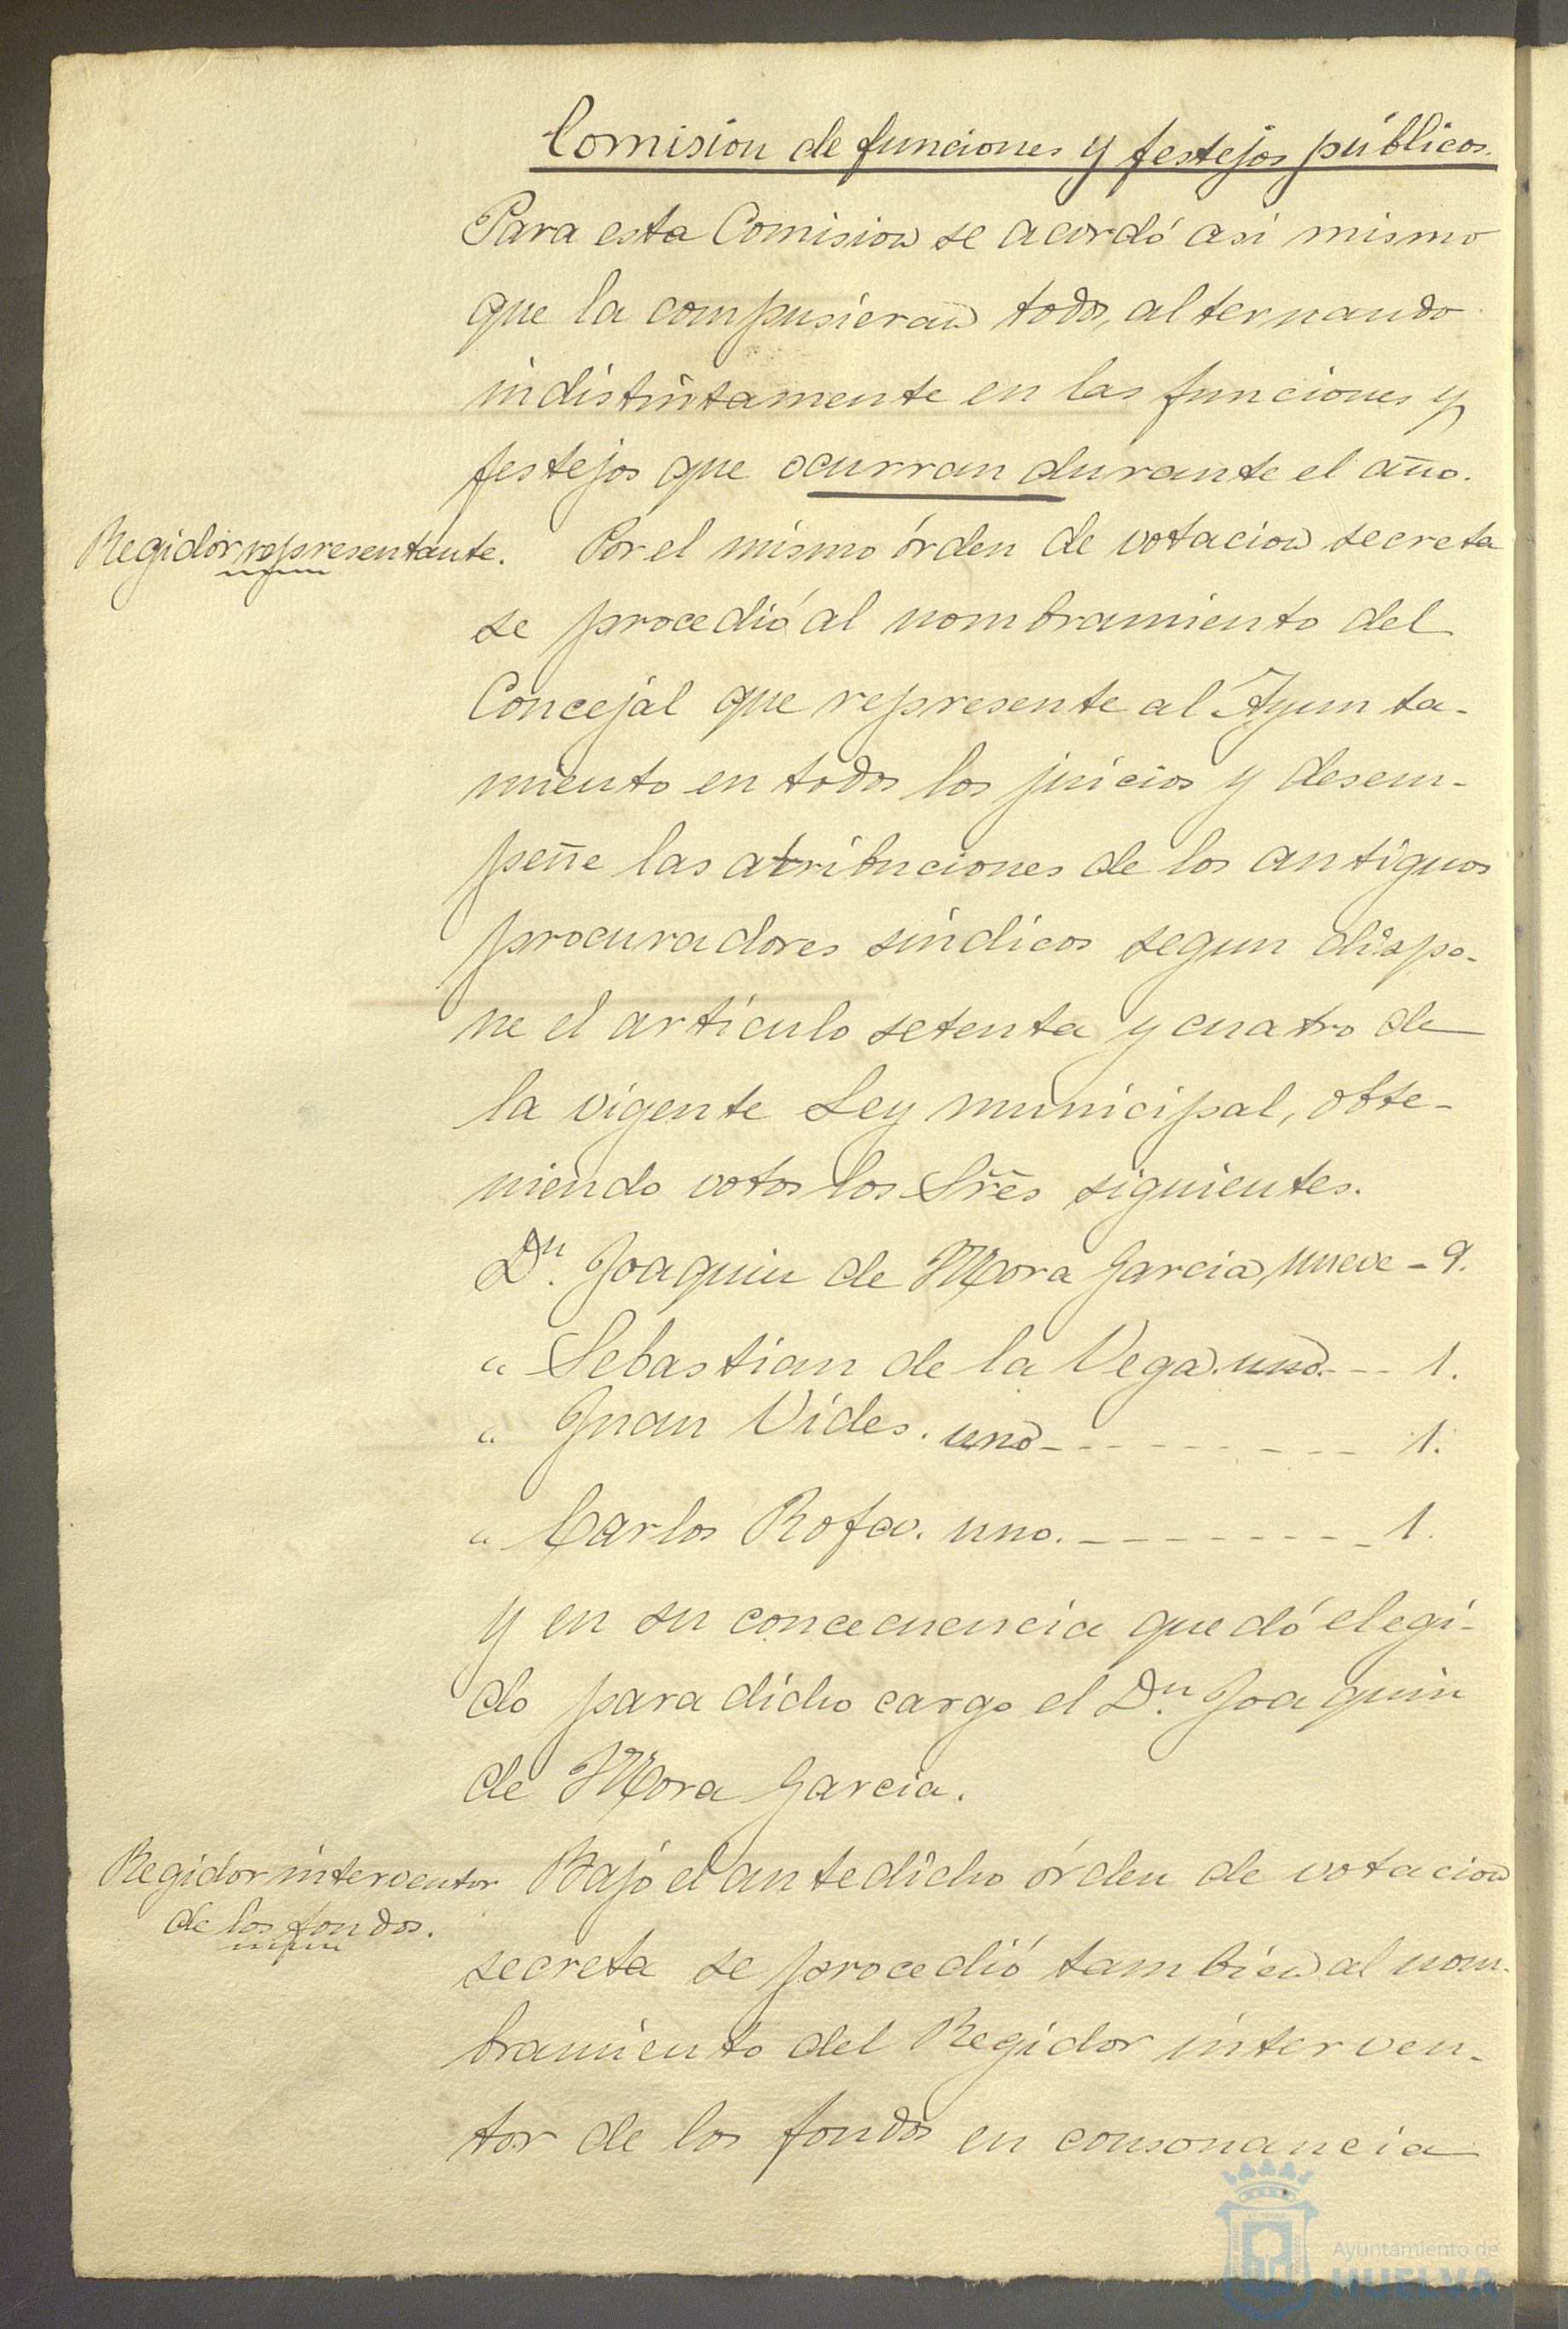 Comision de funciones y festejos públicos.
Para esta Comision se acordó asi mismo
que la compusieran todos, alternando
indistintamente en las funciones y
festejos que ocurran durante el año.
Regidor representante.
Por el mismo órden de votacion secreta
se procedió al nombramiento del
Concejal que represente al Ayunta-
miento en todos los juicios y desem-
peñe las atribuciones de los antiguos
procuradores síndicos segun dispo-
ne el artículo setenta y cuatro de
la vigente Ley municipal, obte-
niendo votos los Sres siguientes.
Dn. Joaquin de Mora Garcia, nueve - 9.
" Sebastian de la Vega. uno. - - 1.
" Juan Vides. uno - - - - - - - - - 1.
" Carlos uno. - - - - - - - - 1.
y en su concecuencia quedó elegi-
do para dicho cargo el Dn. Joaquin
de Mora Garcia.
Regidor interventor
de los fondos.
Bajo el antedicho órden de votacion
secreta se procedió tambien al nom-
bramiento del Regidor interven-
tor de los fondos en consonancia
Ayuntamiento de
HUELVA